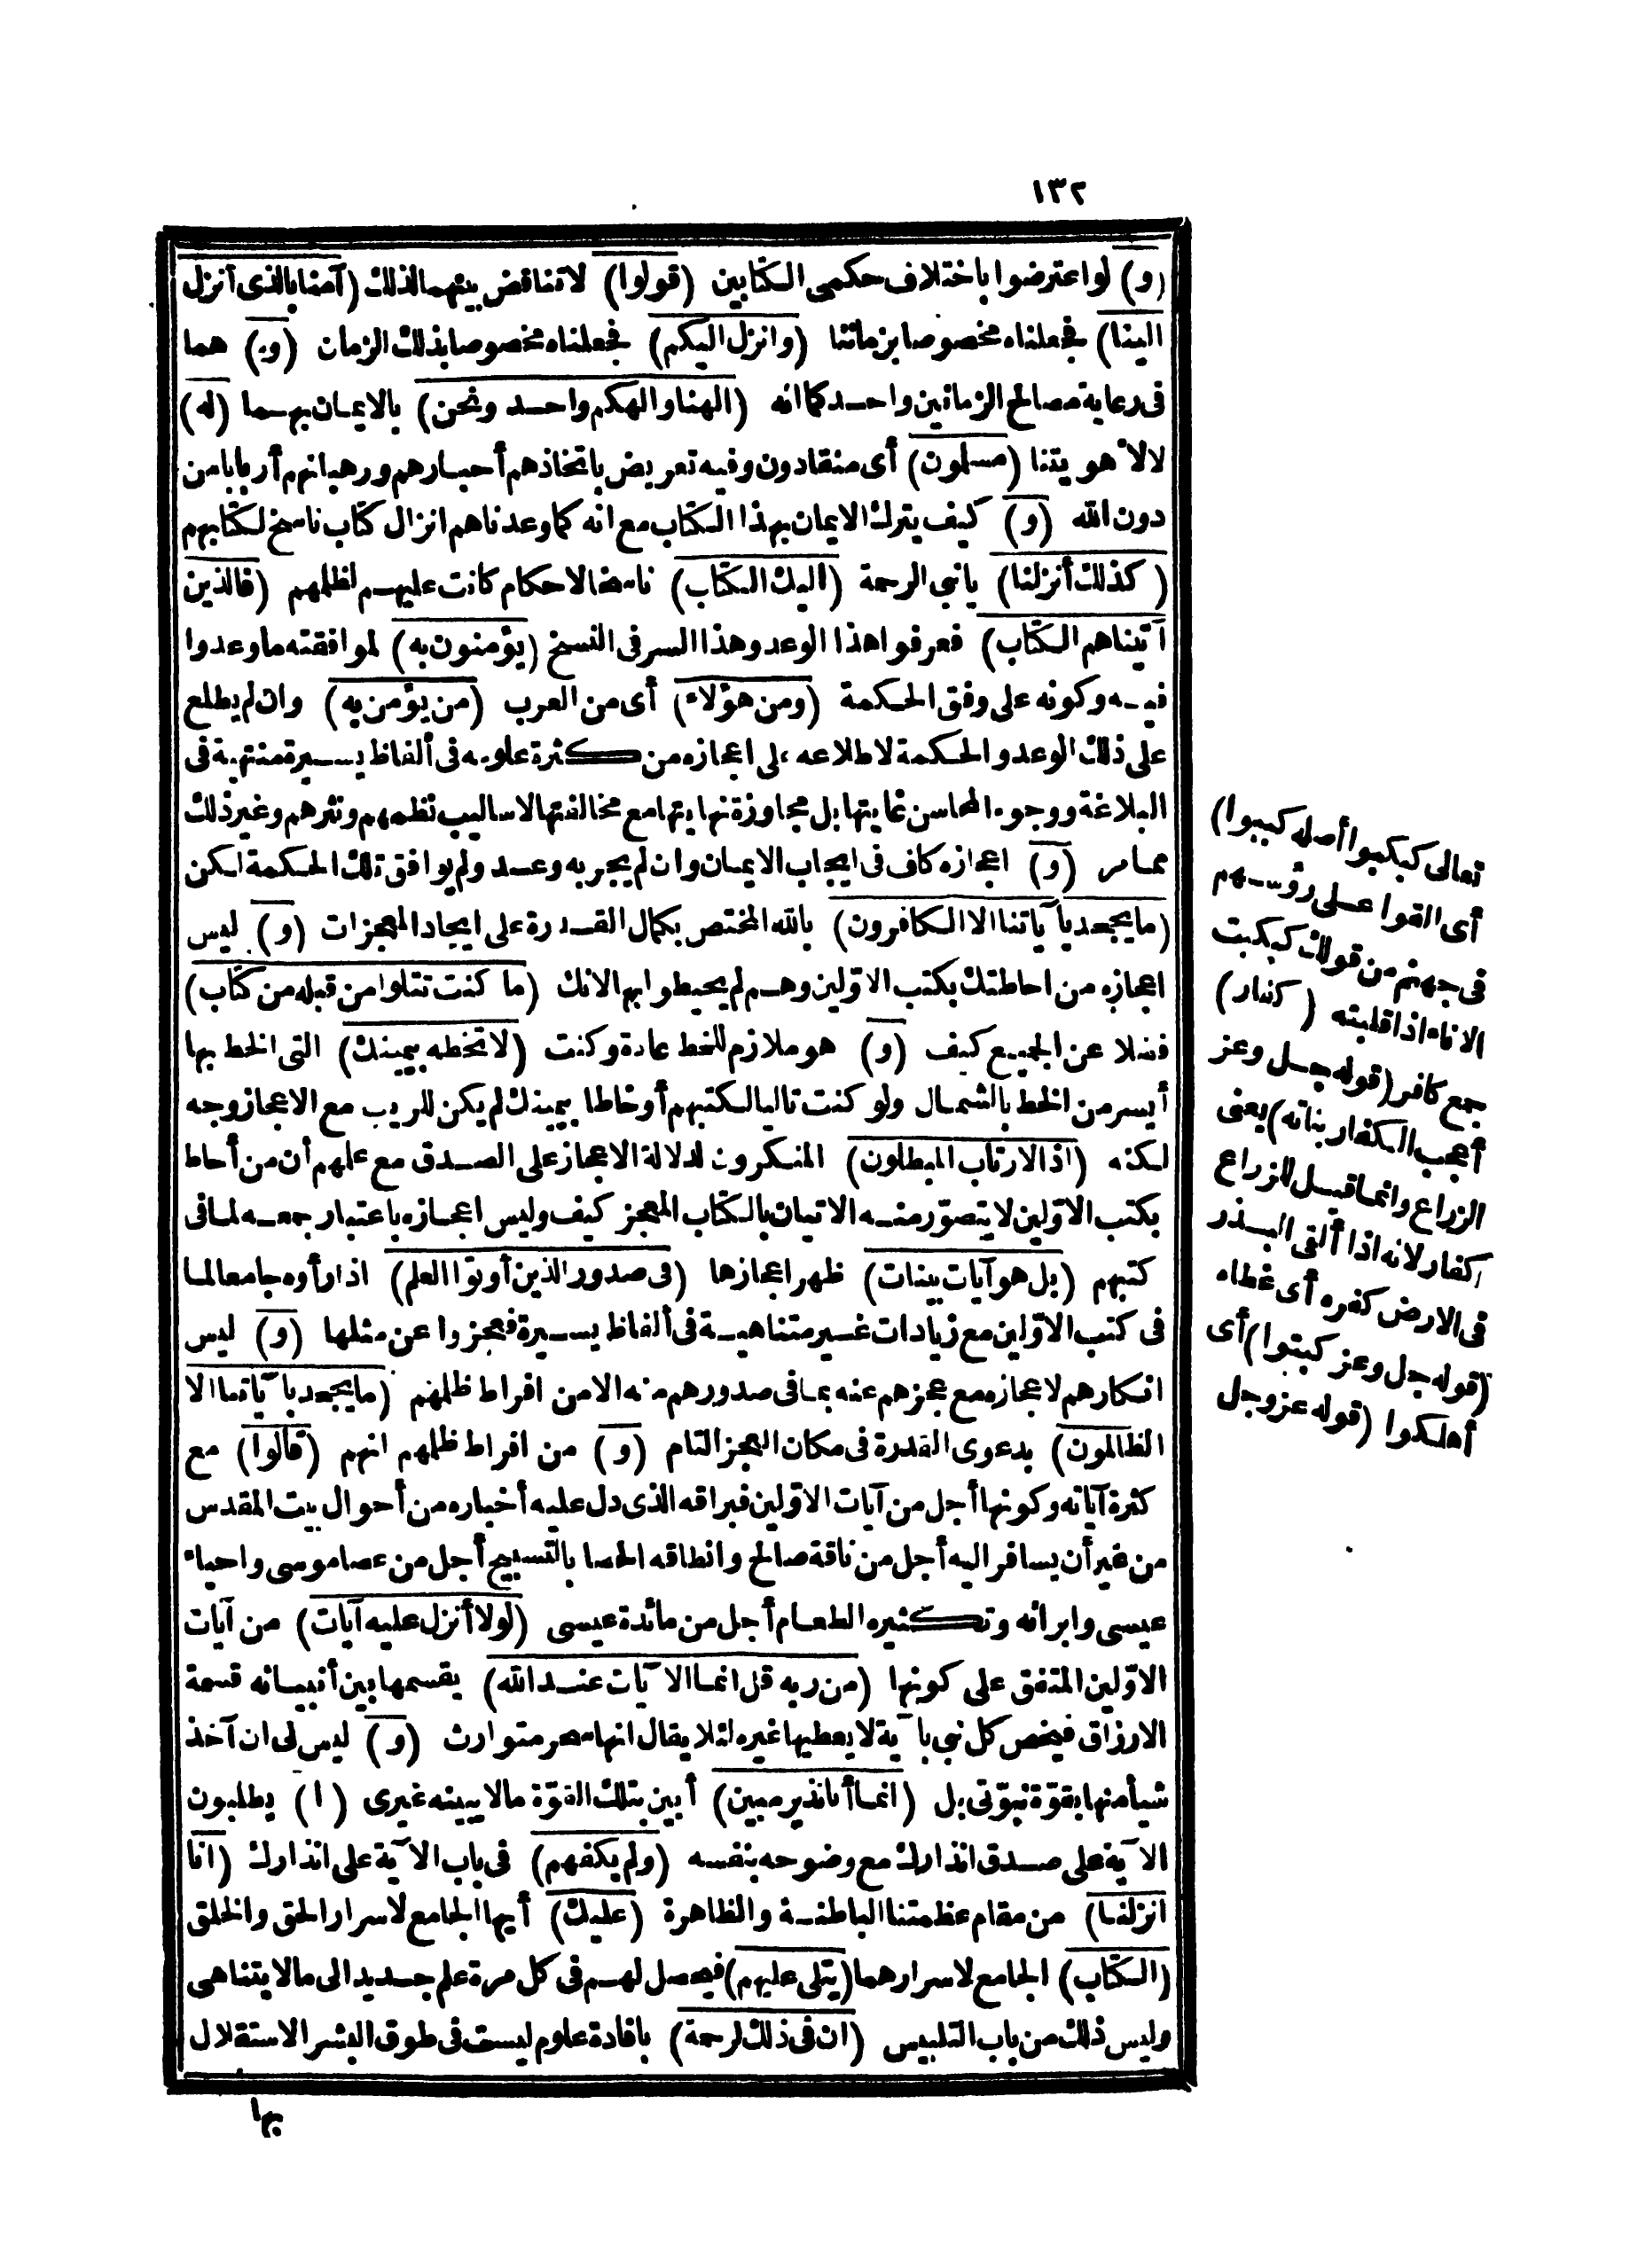 ١٣٢
(و) لو اعترضوا باختلاف حكمى الكتابين (قولوا) لا تناقض بينهما لذلك (آمنا بالذى أنزل
الينا) فجعلناه مخصوصا بزماننا (وانزل اليكم) فجعلناه مخصوصا بذلك الزمان (و) هما
فى رعاية مصالح الزمانين واحد كما انه (الهنا والهكم واحد ونحن) بالايمان بهما (له)
لا لأهويتنا (مسلمون) أى منقادون وفيه تعريض باتخاذهم أحبارهم ورهبانهم أربابا من
دون الله (و) كيف يترك الايمان بهذا الكتاب مع انه كما وعدناهم انزال كتاب ناسخ لكتابهم
(كذلك أنزلنا) يا نبى الرحمة (اليك الكتاب) ناسخا لاحكام كانت عليهم لظلمهم (فالذين
آتيناهم الكتاب) فعرفوا هذا الوعد وهذا السر فى النسخ (يؤمنون به) لموافقته ما وعدوا
فيه وكونه على وفق الحكمة (ومن هؤلاء) أى من العرب (من يؤمن به) وان لم يطلع
على ذلك الوعد والحكمة لاطلاعه على اعجازه من كثرة علومه فى ألفاظ يسيرة منتهية فى
البلاغة ووجوه المحاسن غايتها بل مجاوزة نهايتها مع مخالفتها لاساليب نظمهم ونثرهم وغير ذلك
مما مر (و) اعجازه كاف فى ايجاب الايمان وان لم يجر به وعد ولم يوافق تلك الحكمة لكن
(ما يجحد بآياتنا الا الكافرون) بالله المختص بكمال القدرة على ايجاد المعجزات (و) ليس
اعجازه من احاطتك بكتب الاوّلين وهم لم يحيطوا بها لانك (ما كنت تتلوا من قبله من كتاب)
فضلا عن الجميع كيف (و) هو ملازم للخط عادة وكنت (لا تخطه بيمينك) التى الخط بها
أيسر من الخط بالشمال ولو كنت تاليا لكتبهم أو خاطا بيمينك لم يكن للريب مع الاعجاز وجه
لكنه (اذا لارتاب المبطلون) المنكرون لدلالة الاعجاز على الصدق مع علمهم أن من أحاط
بكتب الاوّلين لا يتصوّر منه الاتيان بالكتاب المعجز كيف وليس اعجازه باعتبار جمعه لما فى
كتبهم (بل هو آيات بينات) ظهر اعجازها (فى صدور الذين أوتوا العلم) اذ رأوه جامعا لما
فى كتب الاوّلين مع زيادات غير متناهية فى ألفاظ يسيرة فعجزوا عن مثلها (و) ليس
انكارهم لاعجازه مع عجزهم عنه بما فى صدورهم منه الا من افراط ظلمهم (ما يجحد بآياتنا الا
الظالمون) بدعوى القدرة فى مكان العجز التام (و) من افراط ظلمهم انهم (قالوا) مع
كثرة آياته وكونها أجل من آيات الاوّلين فبراقه الذى دل عليه أخباره من أحوال بيت المقدس
من غير أن يسافر اليه أجل من ناقة صالح وانطاقه الحصا بالتسبيح أجل من عصا موسى واحياء
عيسى وابرائه وتكثيره الطعام أجل من مائدة عيسى (لولا أنزل عليه آيات) من آيات
الاوّلين المتفق على كونها (من ربه قل انما الآيات عند الله) يقسمها بين أنبيائه قسمة
الارزاق فيخص كل نبى بآية لا يعطيها غيره لئلا يقال انها سحر متوارث (و) ليس لى ان آخذ
شيأ منها بقوّة نبوّتى بل (انما أنا نذير مبين) أبين بتلك القوّة ما لا يبينه غيرى (ا) يطلبون
الآية على صدق انذارك مع وضوحه بنفسه (ولم يكفهم) فى باب الآية على انذارك (انا
انزلنا) من مقام عظمتنا الباطنة والظاهرة (عليك) أيها الجامع لاسرار الحق والخلق
(الكتاب) الجامع لاسرارهما (يتلى عليهم) فيحصل لهم فى كل مرة علم جديد الى ما لا يتناهى
وليس ذلك من باب التلبيس (ان فى ذلك لرحمة) بافادة علوم ليست فى طوق البشر الاستقلال
بها
تعالى كبكبوا أصله كببوا)
أى القوا على رؤسهم
فى جهنم من قولك كبكبت
الاناء اذا قلبته (كفار)
جمع كافر (قوله جل وعز
أعجب الكفار نباته) يعنى
الزراع وانما قيل للزراع
كفار لانه اذا ألقى البذر
فى الارض كفره أى غطاه
(قوله جل وعز كبتوا) أى
أهلكوا (قوله عز وجل